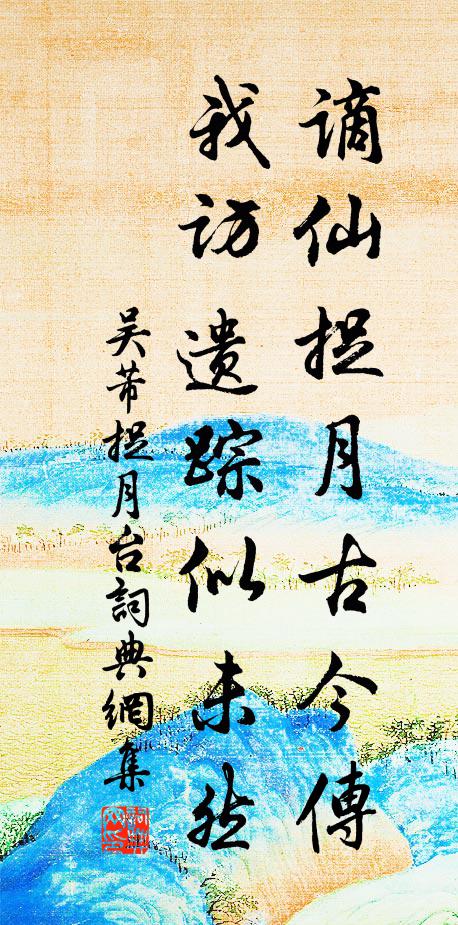 谪仙捉月古今傳
我访遗踪似未然
吴芾捉月台詞典網集